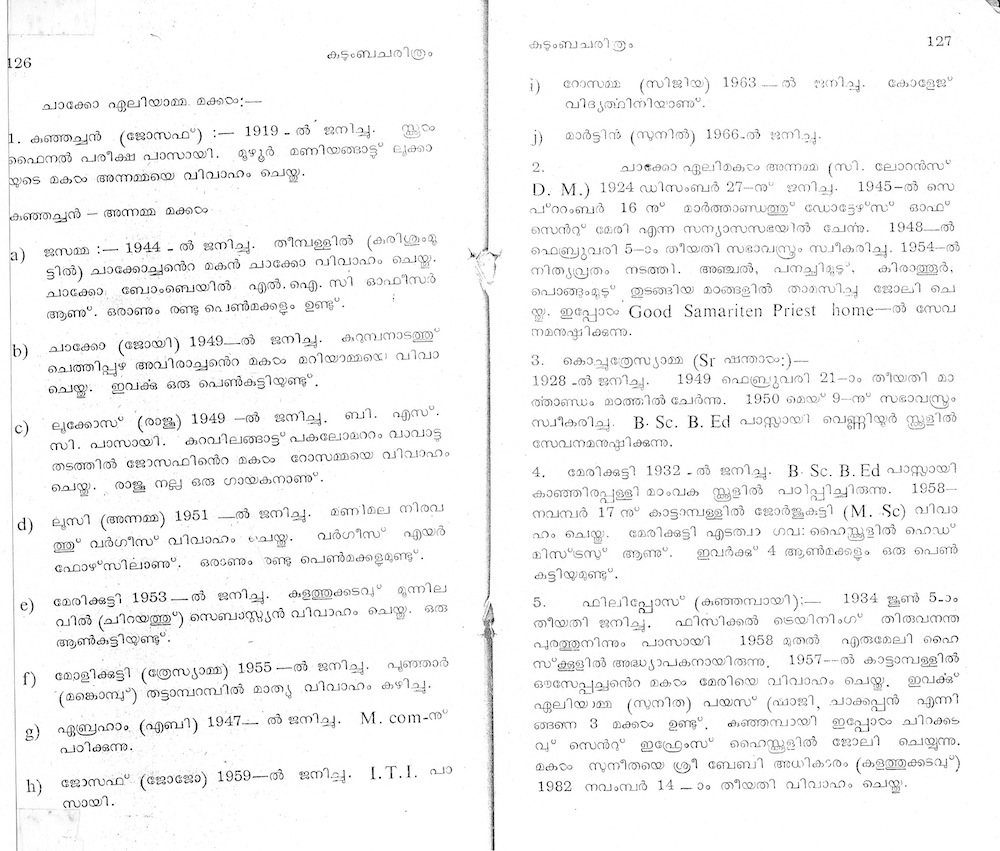 126
കുടുംബചരിത്രം
ചാക്കോ ഏലിയാമ്മ മക്കൾ:—
1. കുഞ്ഞച്ചൻ (ജോസഫ്) :— 1919 - ൽ ജനിച്ചു. സ്കൂൾ
ഫൈനൽ പരീക്ഷ പാസായി. മൂഴൂർ മണിയങ്ങാട്ടു ലൂക്കാ
യുടെ മകൾ അന്നമ്മയെ വിവാഹം ചെയ്തു.
കുഞ്ഞച്ചൻ – അന്നമ്മ മക്കൾ
a) ജസമ്മ :— 1944 - ൽ ജനിച്ചു. തീമ്പള്ളിൽ (കരിശുംമൂ
ട്ടിൽ) ചാക്കോച്ചൻെറ മകൻ ചാക്കോ വിവാഹം ചെയ്തു.
ചാക്കോ ബോംബെയിൽ എൽ. ഐ. സി ഓഫീസർ
ആണു്. ഒരാണും രണ്ടു പെൺമക്കളും ഉണ്ടു്.
b) ചാക്കോ (ജോയി) 1949—ൽ ജനിച്ചു. കുറുമ്പനാടത്തു്
ചെത്തിപ്പുഴ അവിരാച്ചൻെറ മകൾ മറിയാമ്മയെ വിവാ
ചെയ്തു. ഇവർക്കു ഒരു പെൺകുട്ടിയുണ്ടു്.
c) ലൂക്കോസ് (രാജു) 1949 —ൽ ജനിച്ചു. ബി. എസ്.
സി. പാസായി. കുറവിലങ്ങാട്ടു് പകലോമറ്റം വാവാട്ടു
തടത്തിൽ ജോസഫിൻെറ മകൾ റോസമ്മയെ വിവാഹം
ചെയ്തു. രാജു നല്ല ഒരു ഗായകനാണു്.
d) ലൂസി (അന്നമ്മ) 1951 —ൽ ജനിച്ചു. മണിമല നിരവ
ത്തു് വർഗീസ് വിവാഹം ചെയ്തു. വർഗീസ് എയർ
ഫോഴ്സിലാണു്. ഒരാണും രണ്ടു പെൺമക്കളുമുണ്ടു്.
e) മേരിക്കുട്ടി 1953—ൽ ജനിച്ചു. കുളത്തുക്കടവു് മൂന്നില
വിൽ (ചിറയത്തു്) സെബാസ്റ്റ്യൻ വിവാഹം ചെയ്തു. ഒരു
ആൺകുട്ടിയുണ്ടു്.
f) മോളിക്കുട്ടി (ത്രേസ്യാമ്മ) 1955—ൽ ജനിച്ചു. പൂഞ്ഞാർ
(മങ്കൊമ്പു്) തട്ടാമ്പറമ്പിൽ മാത്യു വിവാഹം കഴിച്ചു.
g) ഏബ്രഹാം (എബി) 1947— ൽ ജനിച്ചു. M. com-നു്
പഠിക്കുന്നു.
h) ജോസഫ് (ജോജോ) 1959—ൽ ജനിച്ചു. I. T. I. പാ
സായി.
കുടുംബചരിത്രം
127
i) റോസമ്മ (സിജിയ) 1963 — ൽ ജനിച്ചു. കോളേജ്
വിദ്യർത്ഥിനിയാണു്.
j) മാർട്ടിൻ (സുനിൽ) 1966-ൽ ജനിച്ചു.
2. ചാക്കോ ഏലിമകൾ അന്നമ്മ (സി. ലോറൻസ്
D. M.) 1924 ഡിസംബർ 27—നു് ജനിച്ചു. 1945—ൽ സെ
പ്റ്റംബർ 16 നു് മാർത്താണ്ഡത്തു് ഡോട്ടേഴ്സ് ഓഫ്
സെൻറ് മേരി എന്ന സന്യാസസഭയിൽ ചേർന്നു. 1948—ൽ
ഫെബ്രുവരി 5-ാം തീയതി സഭാവസ്ത്രം സ്വീകരിച്ചു. 1954—ൽ
നിത്യവ്രതം നടത്തി. അഞ്ചൽ, പനച്ചിമൂട്, കിരാത്തൂർ,
പൊങ്ങുംമൂടു് തുടങ്ങിയ മഠങ്ങളിൽ താമസിച്ചു ജോലി ചെ
യ്തു. ഇപ്പോൾ Good Samariten Priest home—ൽ സേവ
നമനുഷ്ഠിക്കുന്നു.
3. കൊച്ചുത്രേസ്യാമ്മ (Sr ഷന്താൾ:)—
1928 -ൽ ജനിച്ചു. 1949 ഫെബ്രുവരി 21-ാം തീയതി മാ
ർത്താണ്ഡം മഠത്തിൽ ചേർന്നു. 1950 മെയ് 9—നു് സഭാവസ്ത്രം
സ്വീകരിച്ചു. B. Sc. B. Ed പാസ്സായി വെണ്ണിയൂർ സ്കൂളിൽ
സേവനമനുഷ്ഠിക്കുന്നു.
4. മേരിക്കുട്ടി 1932 - ൽ ജനിച്ചു. B. Sc. B. Ed പാസ്സായി
കാഞ്ഞിരപ്പള്ളി മാംവക സ്കൂളിൽ പഠിപ്പിച്ചിരുന്നു. 1958—
നവംമ്പർ 17 നു് കാട്ടാമ്പള്ളിൽ ജോർജുകുട്ടി (M. Sc) വിവാ
ഹം ചെയ്തു. മേരിക്കുട്ടി എടത്വാ ഗവ: ഹൈസ്കൂളിൽ ഹെഡ്
മിസ്ട്രസ്സ് ആണു്. ഇവർക്കു് 4 ആൺമക്കളും ഒരു പെൺ
കുട്ടിയുമുണ്ടു്.
5. ഫിലിപ്പോസ് (കുഞ്ഞമ്പായി);— 1934 ജൂൺ 5-ാം
തീയതി ജനിച്ചു. ഫിസിക്കൽ ട്രെയിനിംഗ് തിരുവനന്ത
പുരത്തുനിന്നും പാസായി 1958 മുതൽ എരുമേലി ഹൈ
സ്ക്കൂളിൽ അദ്ധ്യാപകനായിരുന്നു. 1957—ൽ കാട്ടാമ്പള്ളിൽ
ഔസേപ്പച്ചൻെറ മകൾ മേരിയെ വിവാഹം ചെയ്തു. ഇവർക്കു്
ഏലിയാമ്മ (സുനിത) പയസ് (ഷാജി, ചാക്കപ്പൻ എന്നി
ങ്ങനെ 3 മക്കൾ ഉണ്ടു്. കുഞ്ഞമ്പായി ഇപ്പോൾ ചിറക്കട
വു് സെൻറ് ഇഫ്രേംസ് ഹൈസ്കൂളിൽ ജോലി ചെയ്യുന്നു.
മകൾ സുനീതയെ ശ്രീ ബേബി അധികാരം (കുളത്തുക്കടവു്)
1982 നവംമ്പർ 14 — ാം തീയതി വിവാഹം ചെയ്തു.